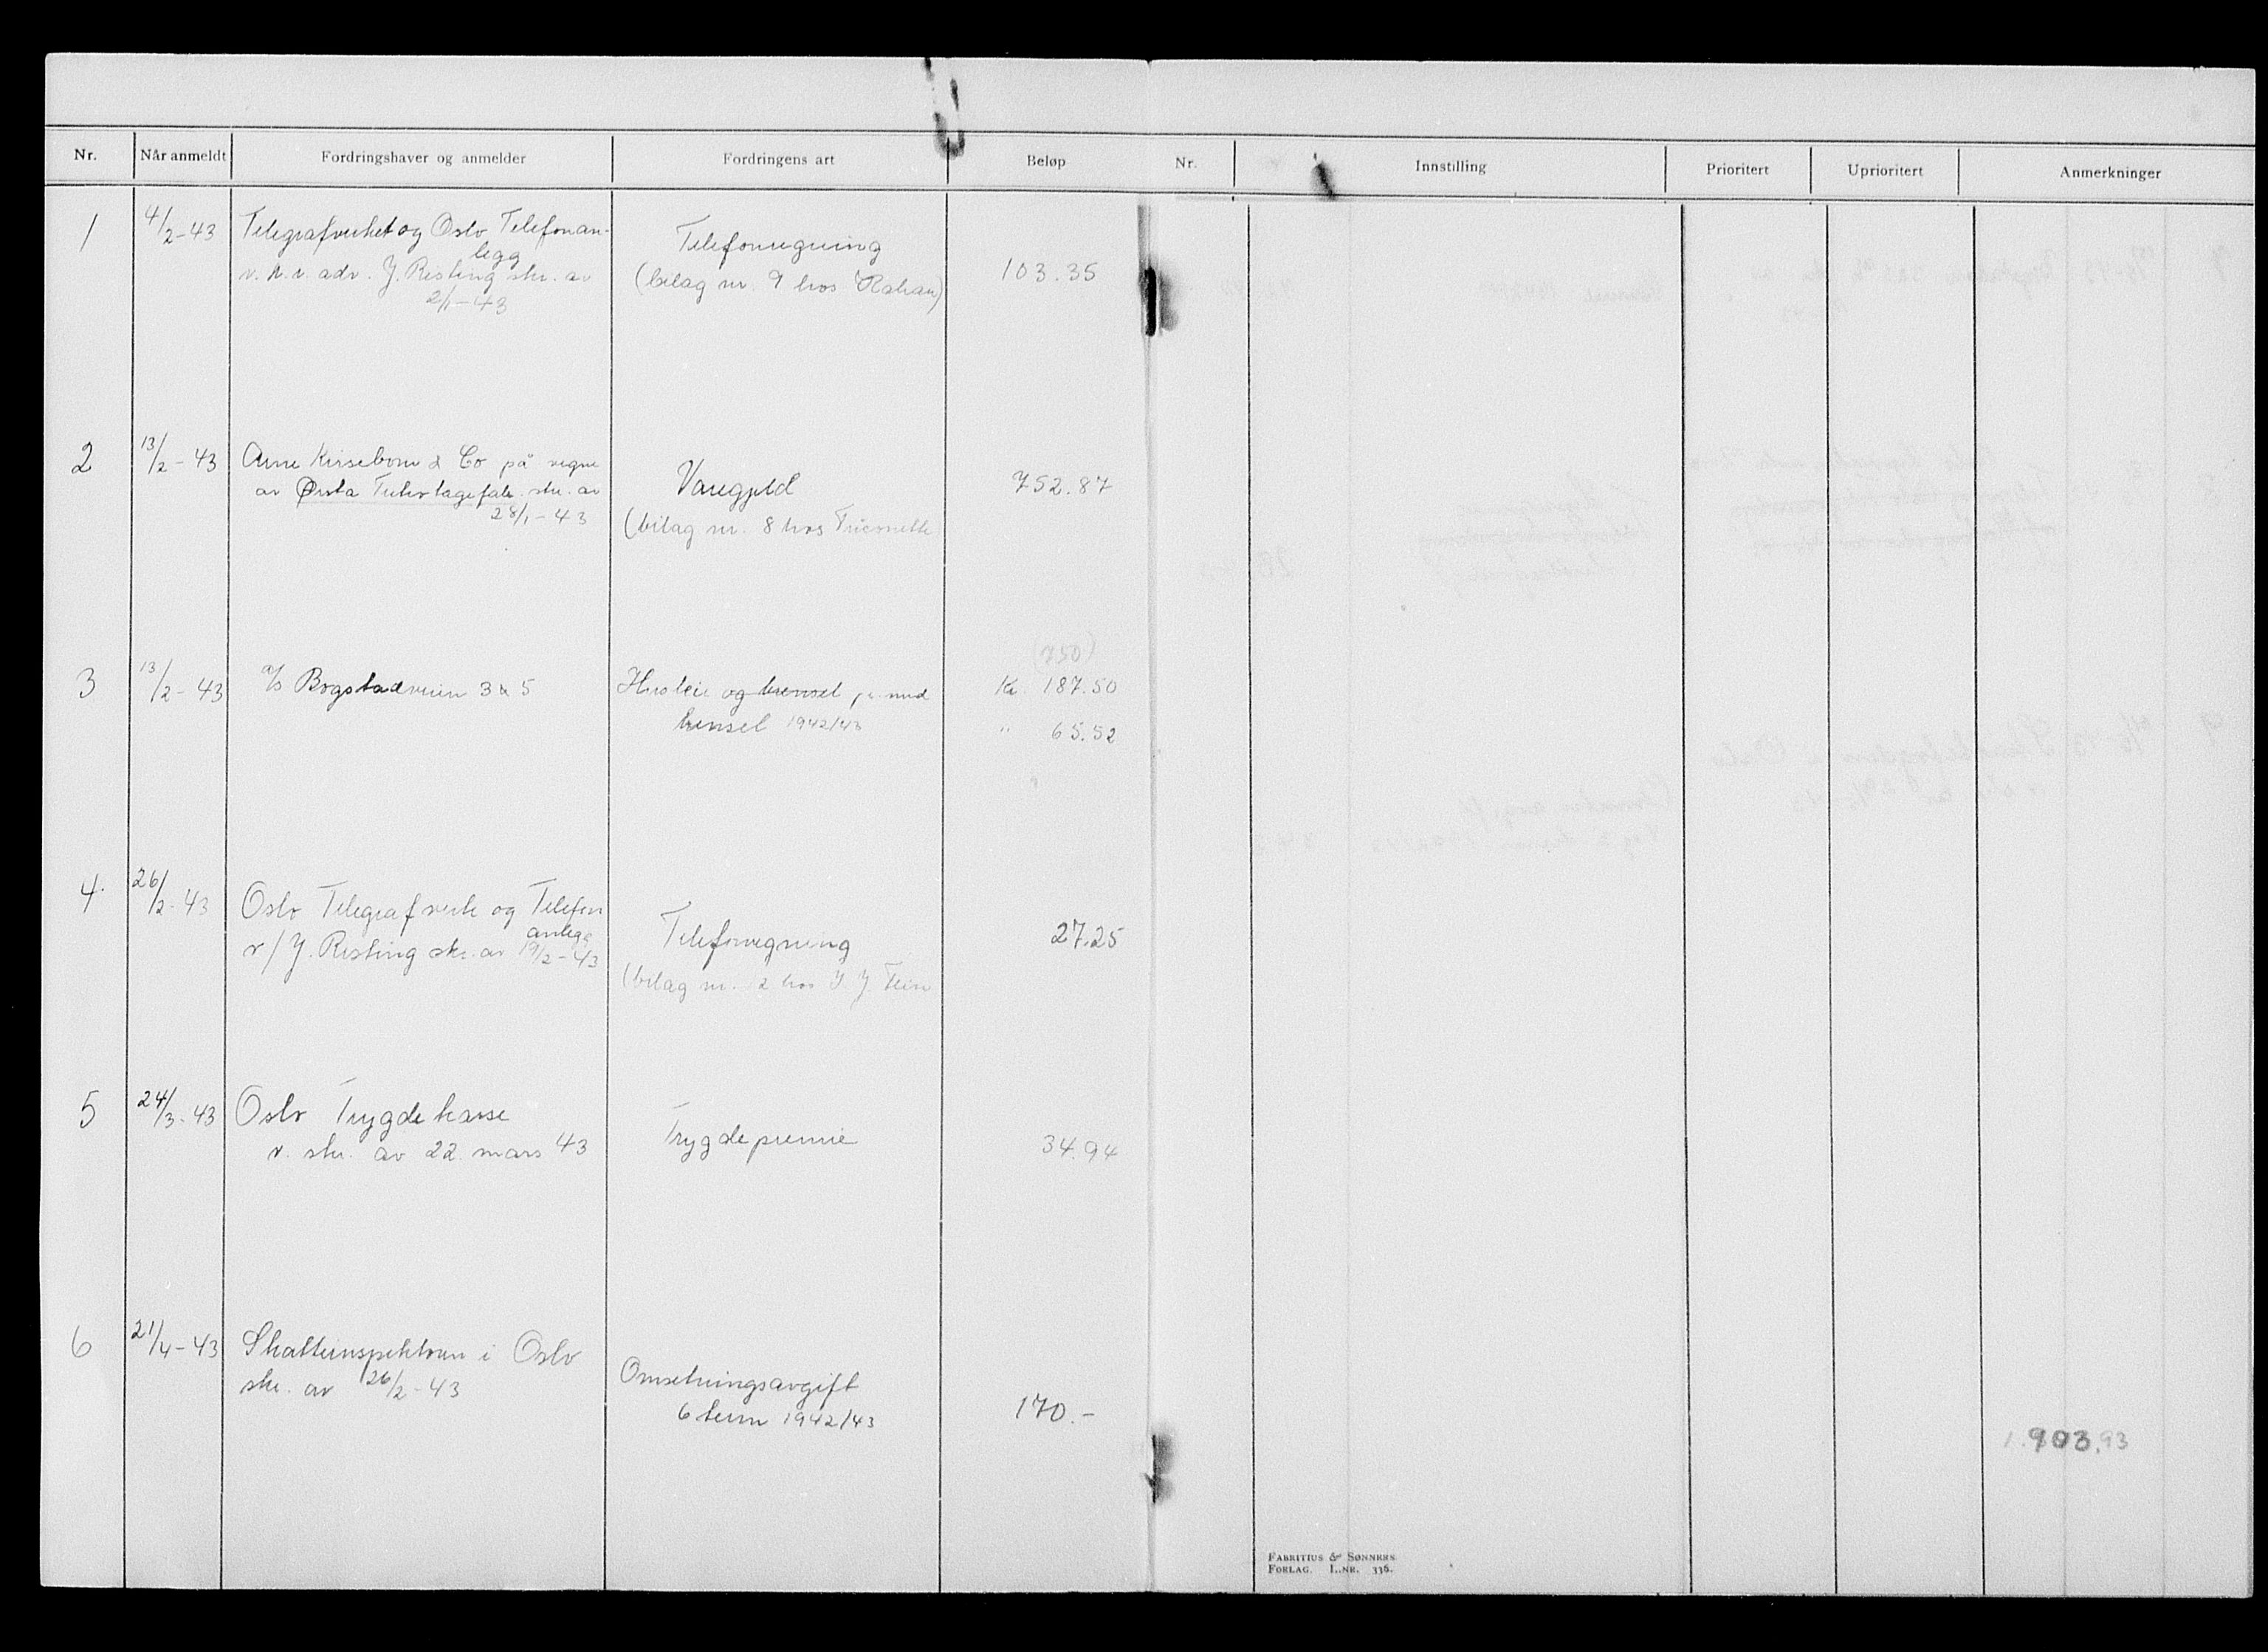 Nr. Når anmeldt Fordringshaver og anmelder Fordringens art Beløp Nr. Innstilling Prioritert Uprioritert Anmerkninger
1 4/2-43 Telegrafverket og Oslo Telefonan-
legg
Telefonregning
v. h.r. adv. J. Risting skr. av
(bilag nr. 9 hos Rahan) 103.35
2/1-43
2 13/2-43 Arne Kirsebom & Co på vegne
av Ørsta skr. av
Varegjeld 752.87
28/1-43
(bilag nr. 8 hos
(750)
3 13/2-43 a/s Bogstadveien 3 & 5 Husleie og brensel pr. mnd Kr 187.50
brensel 1942/43 " 65.52
4. 26/2-43 Oslo Telegrafverk og Telefon
anlegg
v/ J. Risting skr. av 19/2-43
Telefonregning 27.25
(bilag nr. 2 hos
5 24/3-43 Oslo Trygdekasse
v. skr. av 22 mars 43
Trygdepremie 34.94
6 21/4-43 Skatteinspektøren i Oslo
skr. av 26/2-43
Omsetningsavgift
6 term 1942/43 170.-
1.903.93
FABRITIUS & SØNNERS
FORLAG. L.NR. 336.